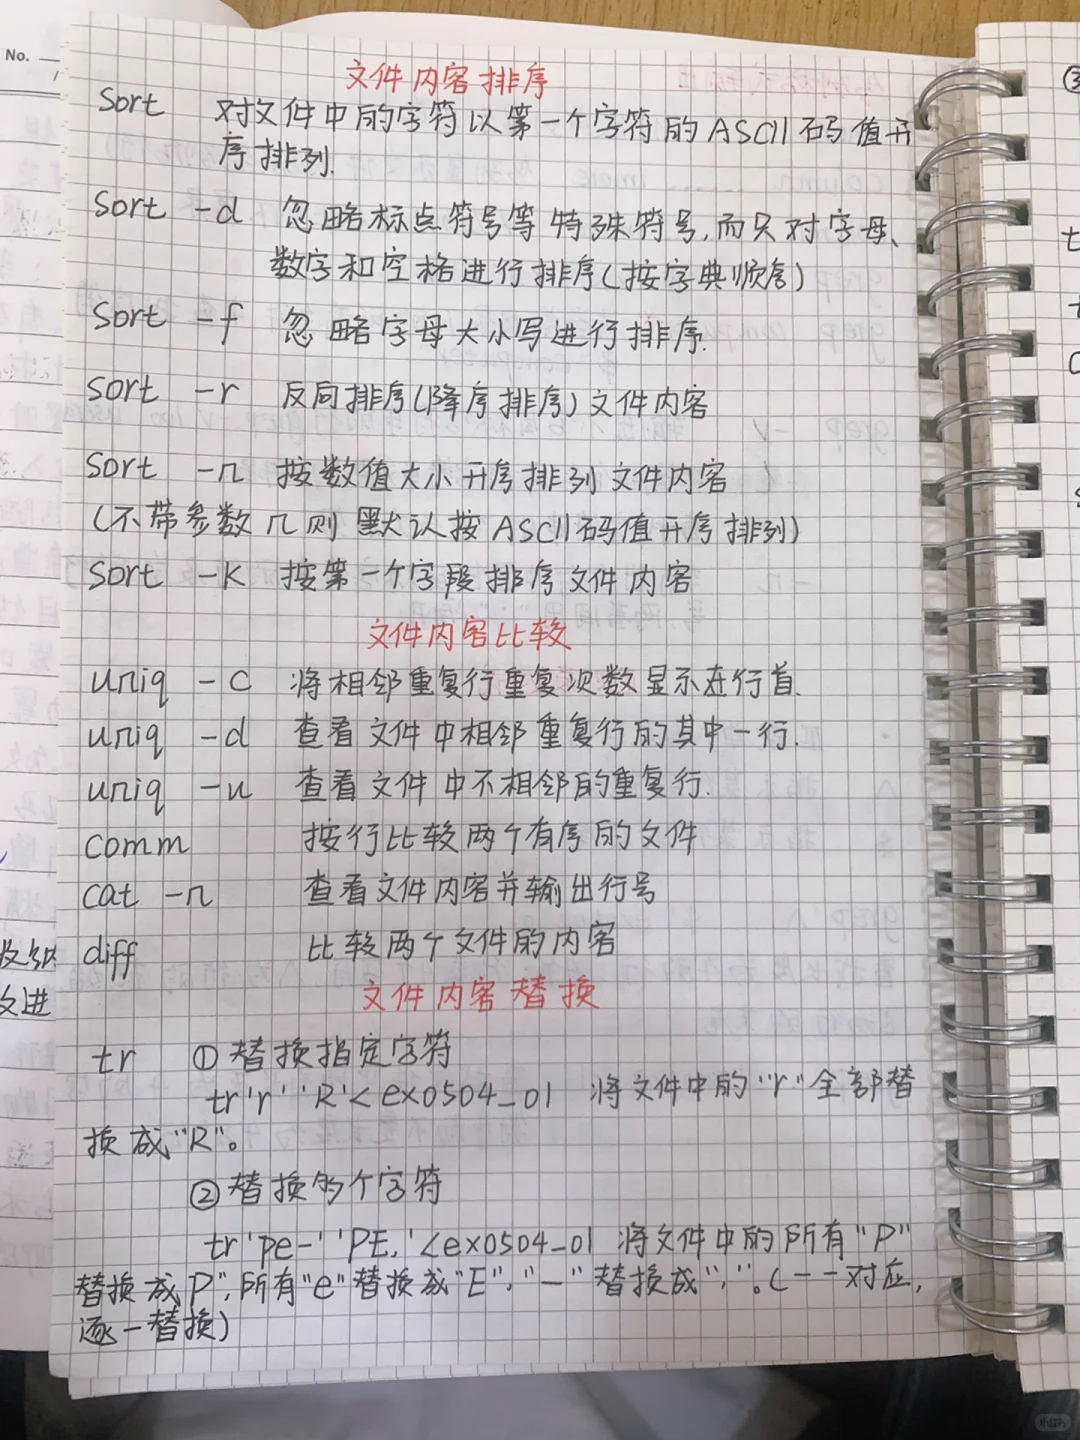 No.
文件内容排序
sort 对文件中的字符以第一个字符的ASCII码值开
序排列.
sort -d 忽略标点符号等特殊符号,而只对字母、
数字和空格进行排序(按字典顺序)
sort -f 忽略字母大小写进行排序.
sort -r 反向排序(降序排序)文件内容
sort -n 按数值大小开序排列文件内容
(不带参数n则默认按ASCII码值开序排列)
sort -K 按第一个字段排序文件内容
文件内容比较
uniq -c 将相邻重复行重复次数显示在行首.
uniq -d 查看文件中相邻重复行的其中一行.
uniq -u 查看文件中不相邻的重复行.
comm 按行比较两个有序的文件
cat -n 查看文件内容并输出行号
diff 比较两个文件的内容
文件内容替换
tr ①替换指定字符
tr'r' 'R'<ex0504_01 将文件中的"r"全部替
换成"R"。
②替换多个字符
tr'pe-' 'PE,'<ex0504_01 将文件中的所有"P"
替换成P",所有"e"替换成"E","-"替换成","。(一一对应,
逐一替换)